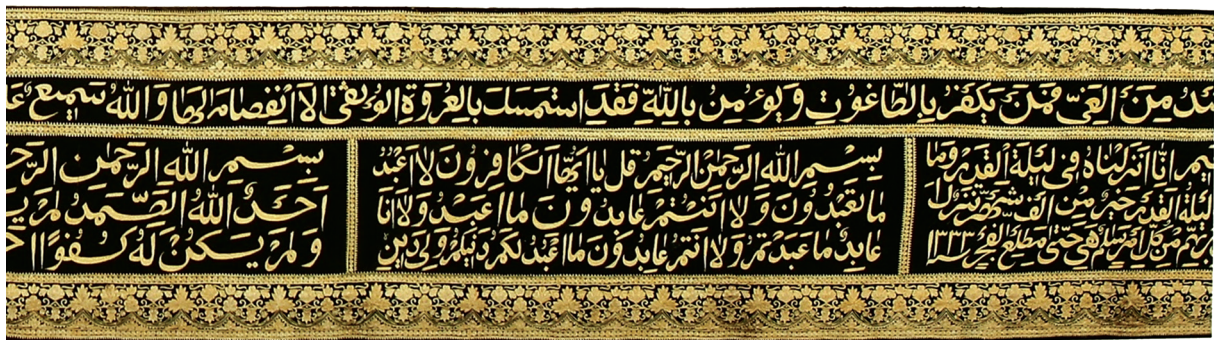 من الغي فمن يكفر بالطاغوت ويؤمن بالله فقد استمسك بالعروة الوثقى لا انفصام لها والله سميع
انا انزلناه في ليلة القدر وما
ليلة القدر خير من الف شهر تنزل
ربهم من كل امر سلام هي حتى مطلع الفجر ١٣٣٣
بسم الله الرحمن الرحيم قل يا ايها الكافرون لا اعبد
ما تعبدون ولا انتم عابدون ما اعبد ولا انا
عابد ما عبدتم ولا انتم عابدون ما اعبد لكم دينكم ولي دين
بسم الله الرحمن
احد الله الصمد لم
ولم يكن له كفوا